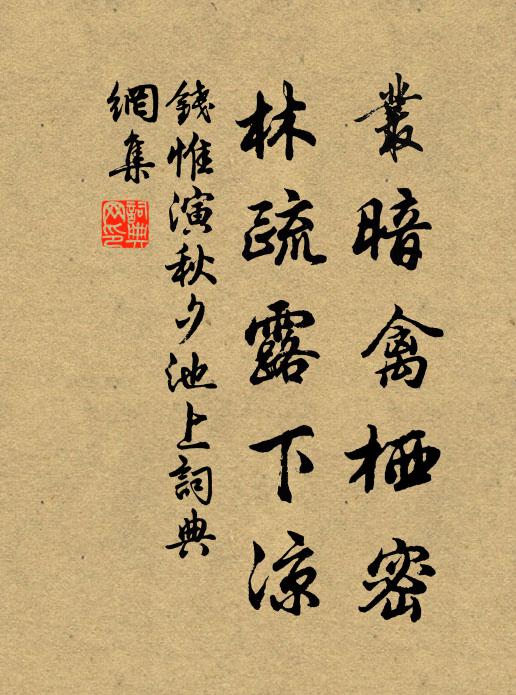 叢暗禽栖密
林疏露下涼
錢惟演秋夕池上詞典
網集
詞典
网印